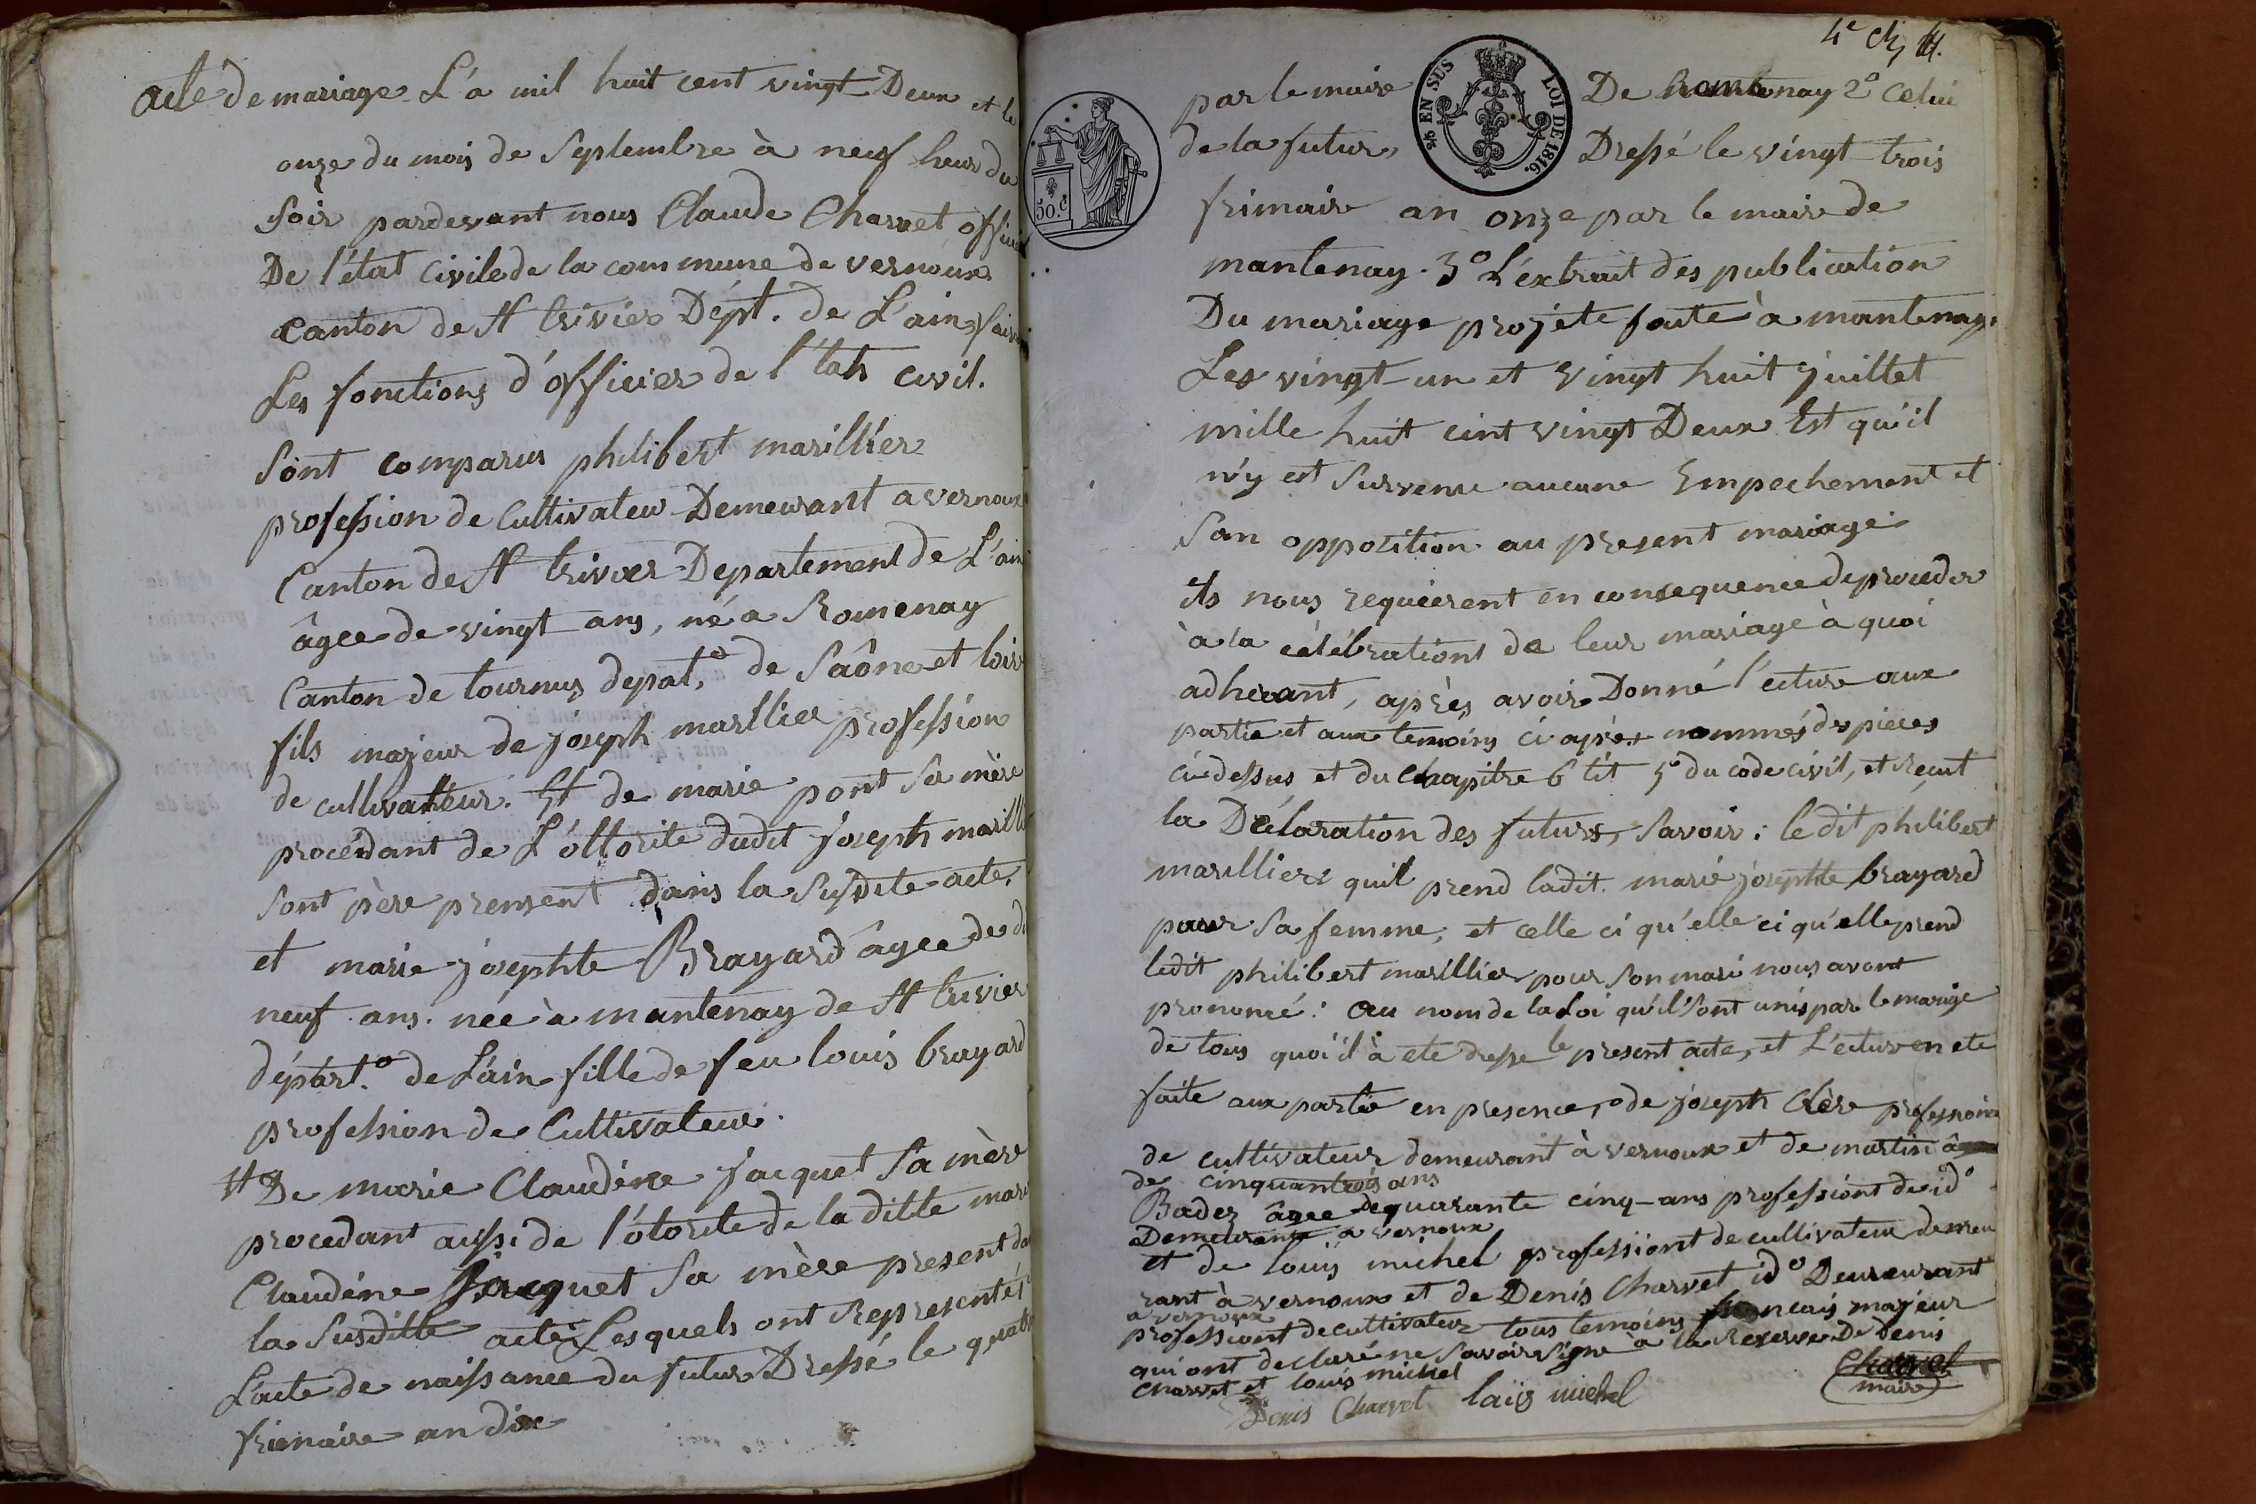 acte de mariage L'a mil huit cent vingt Deux et le
onze du mois de Septembre à neuf heur du
Soir pardevant nous Claude Charvet offici
De l'état civile de la commune de vernoux
canton de St trivier Dépt. de L'ain, fais
Les fonctions d'officier de l'tat civil.
Sont comparus philibert marillier
profession de Cultivateur Demeurant a vernoux
Canton de St trivier Departement de L'ain
âgee de vingt ans, né a Romenay
Canton de tournus depat.o de Saône et loir
fils majeur de joseph marllier profession
de cultivatteur. Et de marie pont Sa mère
procédant de L'ottorite dudit joseph marill
Sont père prensent dans la Susdite acte.
et marie josephte Brayard âgee de di
neuf ans. née à mantenay de St trivier
départ.o de L'ain fille de feu louis brayard
profession de Cultivateur.
Et De marie Claudine jacquet Sa mère
procedant aussi de l'otorite de la ditte mari
Claudéne Jacquet Sa mère present da
la Susditte acte Lesquels ont Representés
L'acte de naissance du futur Dressé le quatr
frimaire an dix
4e
par le maire De Romenay 2o Celui
EN SUS
LOI DE 1816.
50.C
de la future, Dressé le vingt-trois
frimaire an onze par le maire de
mantenay. 3o L'extrait des publication
Du mariage projete faite à mantenay.
Les vingt-un et vingt huit juillet
mille huit cint vingt Deux Est qu'il
n'y est Survenu aucune Empechement et
San opposition au present mariage.
ils nous requierent en consequence de proceder
à la célébrations de leur mariage à quoi
adherant, après avoir Donné l'ecture aux
partie et aux temoins ci après nommés des pieces
ci dessus et du chapitre 6 tit 5e du code civil, et reçut
la Déclaration des futurs, Savoir: le dit philibert
marillier quil prend ladit. marie josephte brayard
pour Sa femme, et celle ci qu'elle ci qu'elle prend
ledit philibert marillier pour Son mari nous avont
prononcé: au nom de la Loi qu'il Sont unis par le mariage
de tous quoi il à ete dresse le present acte, et L'ecture en ete
faite aux partie en presence, de joseph Clère professoin
de cultivateur demeurant à vernoux et de martin
de cinquantrois ans
Bader âgee de quarante cinq-ans professiont de ido
Demeurant a vernoux
et de louis michel professiont de cultivateur demeu
rant à vernoux et de Denis Charvet ido Demeurant
a vernoux
professiont de cultivateur tous temoins francais majeur
qui ont declaré ne Savoir Signe à la Reserve De Denis
Charvet et louis michel
Charvet
maire
Denis Charvet laiis michel